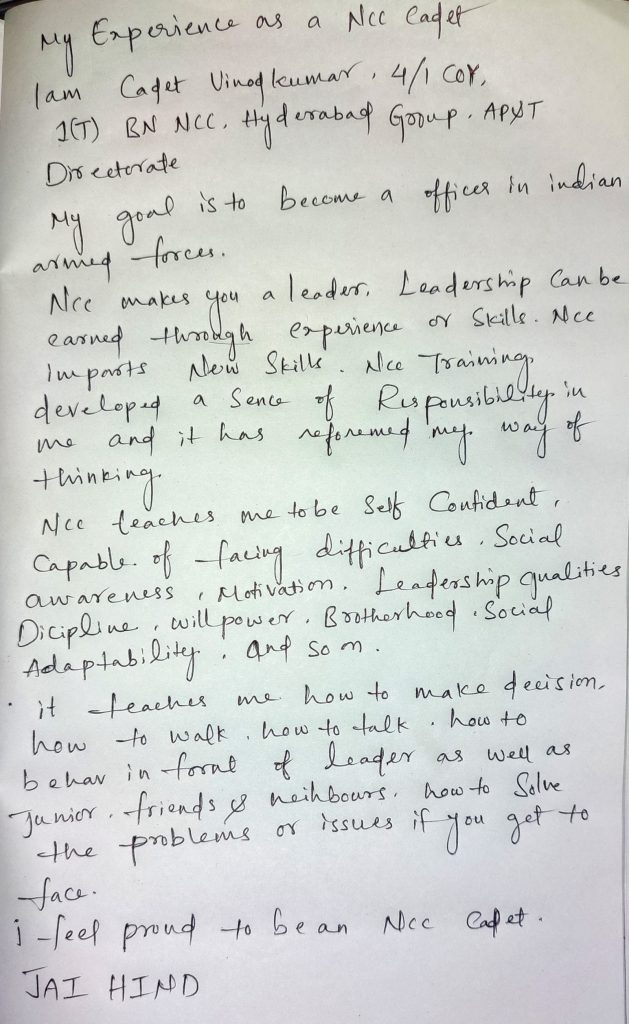 My Experience as a Ncc Cadet
Iam Cadet Vinodkumar, 4/1 COY,
1(T) BN NCC, Hyderabad Group. AP&T
Directorate
My goal is to become a officer in indian
armed forces.
Ncc makes you a leader. Leadership Can be
earned through experience or Skills. Ncc
imparts New Skills. Ncc Training
developed a Sence of Responsibility in
me and it has reforemed my way of
thinking
Ncc teaches me to be Self Confident,
Capable of facing difficulties, Social
awareness, Motivation. Leadership qualities
Dicipline, will power, Brotherhood, Social
Adaptability, and so on.
· it teaches me how to make decision,
how to walk, how to talk, how to
behav in foront of leader as well as
junior, friends & neihbours, how to Solve
the problems or issues if you get to
face.
i feel proud to be an Ncc Cadet.
JAI HIND